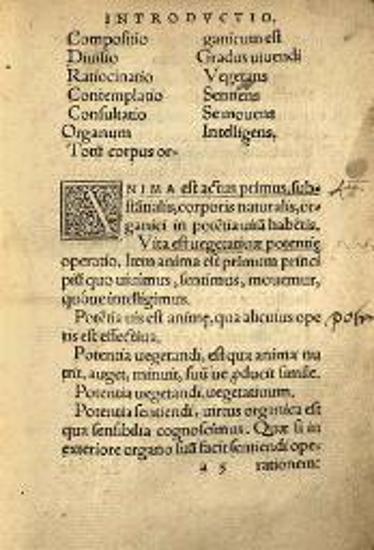 INTRODVCTIO.
Compositio ganicum est
Diuisio Gradus uiuendi
Ratiocinatio Vegetans
Contemplatio Sentiens
Consultatio Se mouens
Organum Intelligens.
Totũ corpus or-
ANIMA est actus primus, sub-
stãtialis, corporis naturalis, or-
ganici in potẽtia uitã habẽtis.
Vita est uegetatiuæ potentię
operatio. Item anima est primum princi
piũ quo uiuimus, sentimus, mouemur,
quóue intelligimus.
Potẽtia uis est animę, qua alicuius ope
ris est effectiua.
Potentia uegetandi, est qua anima nu
trit, auget, minuit, suũ ue ꝓducit simile.
Potentia uegetandi, uegetatiuum.
Potentia sentiendi, uirtus organica est
qua sensibilia cognoscimus. Quæ si in
exteriore organo suã facit sentiendi ope-
a 5 rationem: